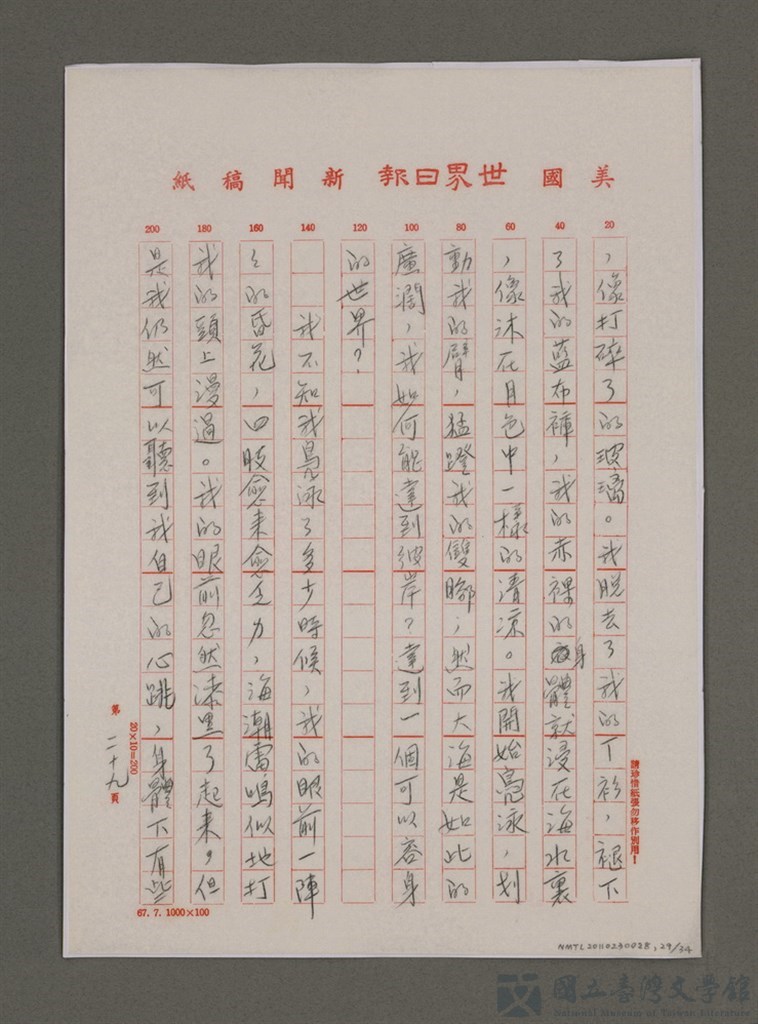 美國世界日報新聞稿紙
20 40 60 80 100 120 140 160 180 200
，像打碎了的玻璃。我脱去了我的丁衫，褪下
了我的藍布褲，我的赤裸的身體就浸在海水裏
，像沐在月色中一樣的清凉。我開始鳧泳，划
動我的臂，猛蹬我的雙腳；然而大海是如此的
廣濶，我如何能達到彼岸？達到一個可以容身
的世界？
我不知我鳧泳了多少時候，我的眼前一陣
々的昏花，四肢愈來愈乏力，海潮雷鳴似地打
我的頭上漫過。我的眼前忽然漆黑了起來，但
是我仍然可以聽到我自己的心跳，身體下有些
請珍惜紙張勿移作別用！
20×10=200
第二十九頁
67. 7. 1000×100
NMTL20110230028, 29/34
國立臺灣文學館
National Museum of Taiwan Literature